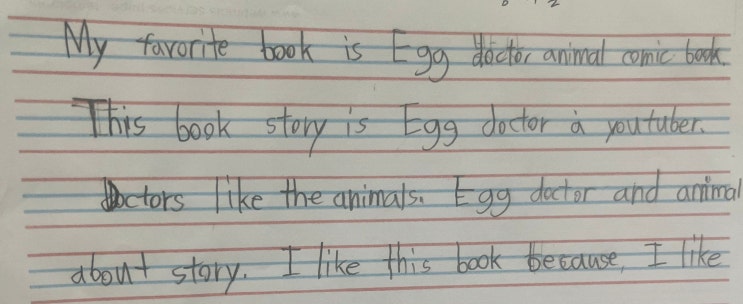 My favorite book is Egg doctor animal comic book.
This book story is Egg doctor a youtuber.
Doctors like the animals. Egg doctor and animal
about story. I like this book because, I like